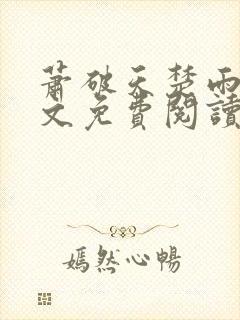 蕭破天楚雨
文免費閱讀
嫣然心暢